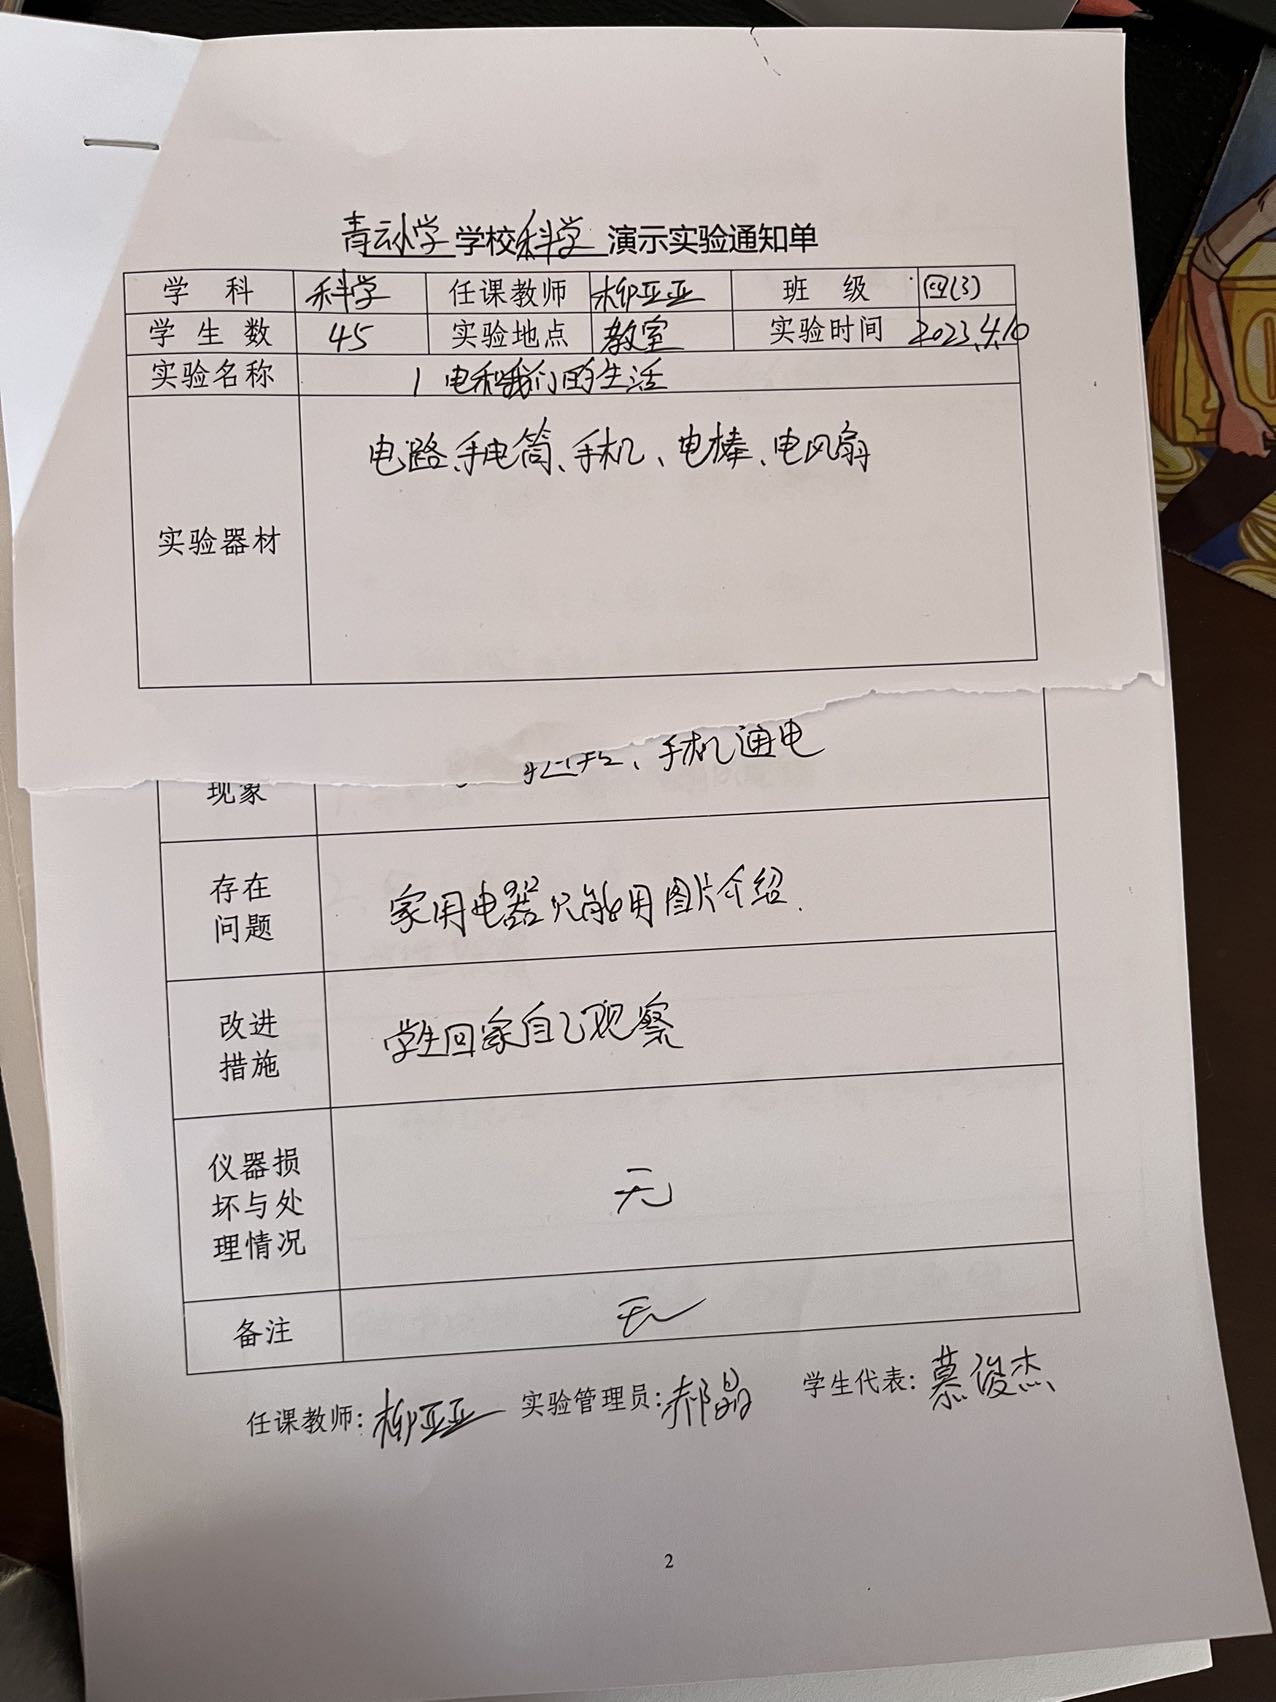 青云小学学校科学演示实验通知单
学 科 科学 任课教师 柳亚亚 班 级 四(3)
学 生 数 45 实验地点 教室 实验时间 2023.4.10
实验名称 1 电和我们的生活
电路、手电筒、手机、电棒、电风扇
实验器材
、手机通电
现象
存在
问题
家用电器只能用图片介绍.
改进
措施
学生回家自己观察
仪器损
坏与处
理情况
无
备注 无
任课教师: 柳亚亚 实验管理员: 郝晶 学生代表: 慕俊杰
2